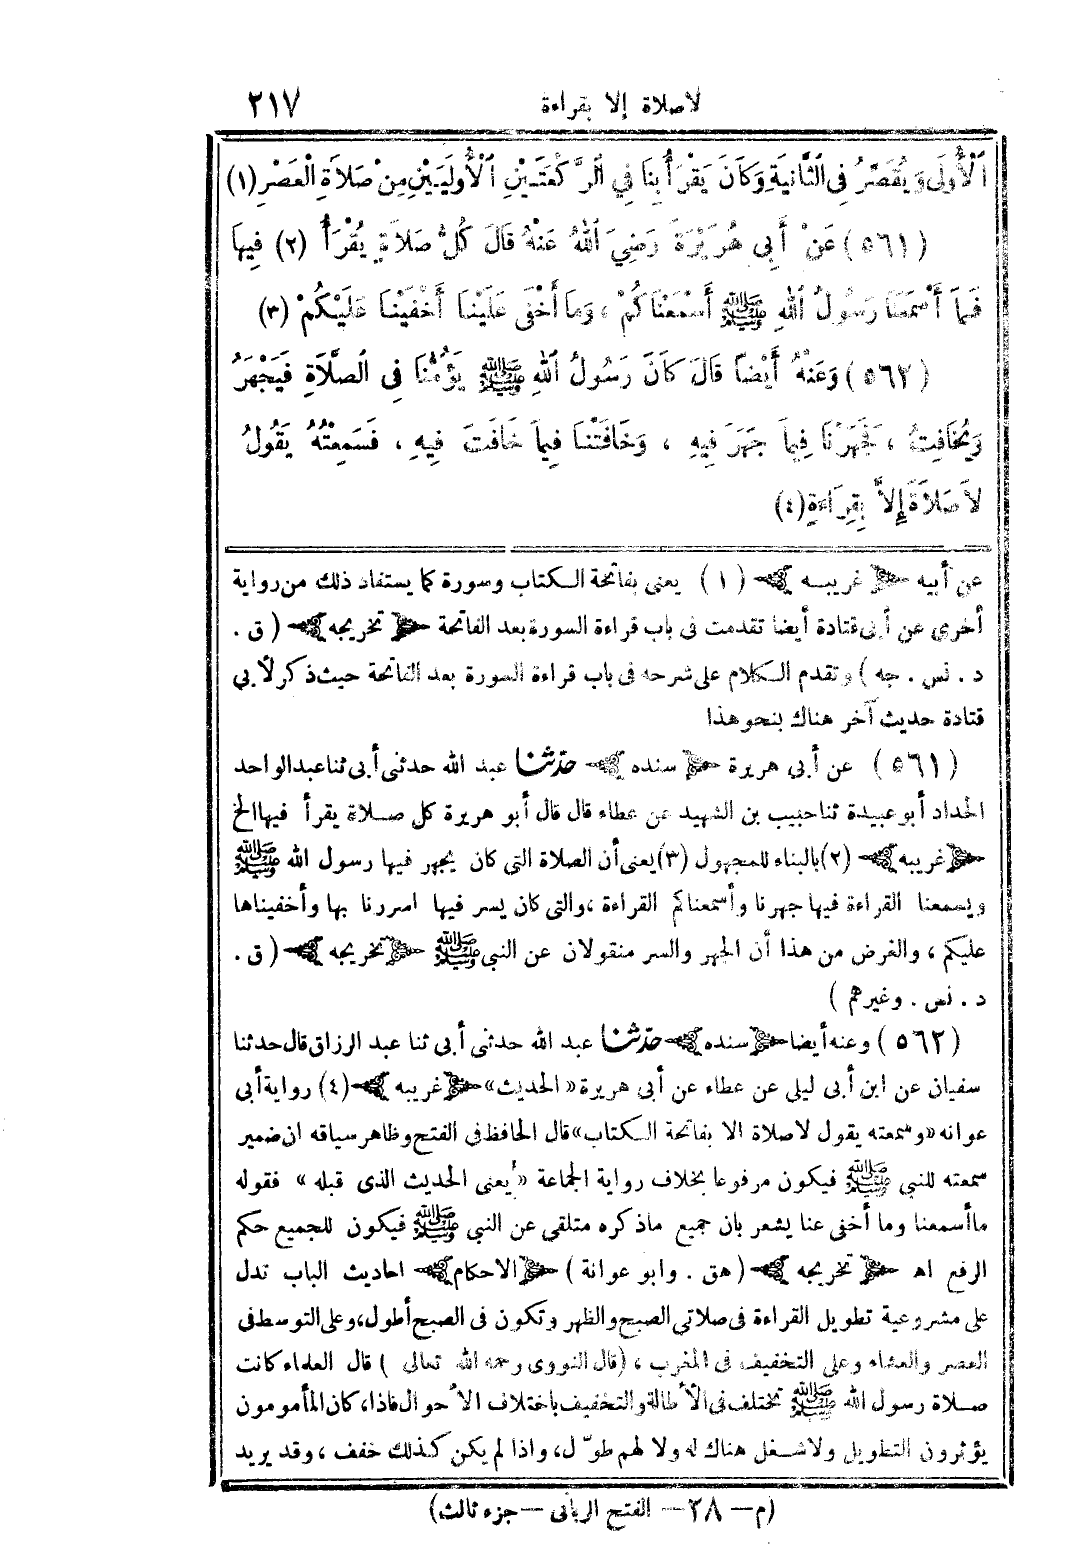 لاصلاة إلا بقراءة ٢١٧
ٱلْأُولَى وَيُقَصِّرُ فِى الثَّانِيَةِ وَكَانَ يَقْرَأُ بِنَا فِي ٱلرَّكْعَتَيْنِ ٱلْأُولَيَيْنِ مِنْ صَلَاةِ الْعَصْرِ (١)
(٥٦١) عَنْ أَبِى هُرَيْرَةَ رَضِيَ ٱللهُ عَنْهُ قَالَ كُلُّ صَلَاةٍ يُقْرَأُ (٢) فِيهَا
فَمَا أَسْمَعَنَا رَسُولُ ٱللهِ ﷺ أَسْمَعْنَاكُمْ ، وَمَا أَخْفَى عَلَيْنَا أَخْفَيْنَا عَلَيْكُمْ (٣)
(٥٦٢) وَعَنْهُ أَيْضًا قَالَ كَانَ رَسُولُ ٱللهِ ﷺ يَؤُمُّنَا فِى الصَّلَاةِ فَيَجْهَرُ
وَيُخَافِتُ ، فَجَهَرْنَا فِيمَا جَهَرَ فِيهِ ، وَخَافَتْنَا فِيمَا خَافَتَ فِيهِ ، فَسَمِعْتُهُ يَقُولُ
لَا صَلَاةَ إِلَّا بِقِرَاءَةٍ (٤)
عن أبيه ﴿غريبه﴾ (١) يعنى بفاتحة الكتاب وسورة كما يستفاد ذلك من رواية
أخرى عن أبى قتادة أيضا تقدمت فى باب قراءة السورة بعد الفاتحة ﴿تخريجه﴾ (ق .
د . نس . جه) وتقدم الكلام على شرحه فى باب قراءة السورة بعد الفاتحة حيث ذكر لأبي
قتادة حديث آخر هناك بنحو هذا
(٥٦١) عن أبى هريرة ﴿سنده﴾ حدثنا عبد الله حدثنى أبى ثنا عبد الواحد
الحداد أبو عبيدة ثنا حبيب بن الشهيد عن عطاء قال قال أبو هريرة كل صلاة يقرأ فيها الخ
﴿غريبه﴾ (٢) بالبناء للمجهول (٣) يعنى أن الصلاة التى كان يجهر فيها رسول الله ﷺ
ويسمعنا القراءة فيها جهرنا وأسمعناكم القراءة ، والتى كان يسر فيها اسررنا بها وأخفيناها
عليكم ، والغرض من هذا أن الجهر والسر منقولان عن النبى ﷺ ﴿تخريجه﴾ (ق .
د . نس . وغيرهم)
(٥٦٢) وعنه أيضا ﴿سنده﴾ حدثنا عبد الله حدثنى أبى ثنا عبد الرزاق قال حدثنا
سفيان عن ابن أبى ليلى عن عطاء عن أبى هريرة «الحديث» ﴿غريبه﴾ (٤) رواية أبى
عوانه «وسمعته يقول لاصلاة الا بفاتحة الكتاب» قال الحافظ فى الفتح وظاهر سياقه ان ضمير
سمعته للنبي ﷺ فيكون مرفوعا بخلاف رواية الجماعة «أيعنى الحديث الذى قبله» فقوله
ما أسمعنا وما أخفى عنا يشعر بان جميع ماذكره متلقى عن النبى ﷺ فيكون للجميع حكم
الرفع اه ﴿تخريجه﴾ (هق . وابو عوانة) ﴿الاحكام﴾ احاديث الباب تدل
على مشروعية تطويل القراءة فى صلاتى الصبح والظهر وتكون فى الصبح أطول ، وعلى التوسط فى
العصر والعشاء وعلى التخفيف فى المغرب ، (قال النووى رحمه الله تعالى) قال العلماء كانت
صلاة رسول الله ﷺ تختلف فى الأطالة والتخفيف باختلاف الأحوال فاذا ، كان المأمومون
يؤثرون التطويل ولاشغل هناك له ولا لهم طوّل ، واذا لم يكن كذلك خفف ، وقد يريد
(م – ٢٨ – الفتح الربانى – جزء ثالث)